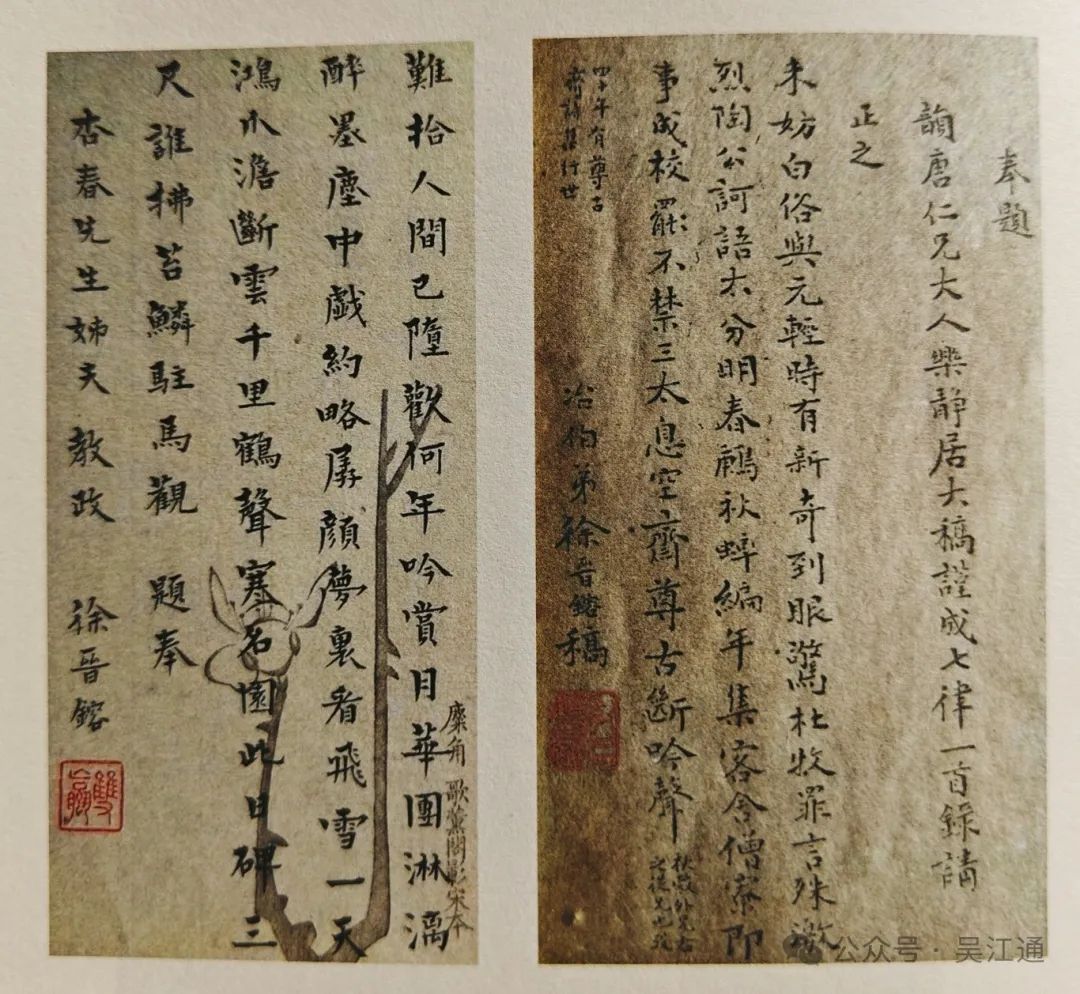 奉題
韻唐仁兄大人樂靜居大稿謹成七律一首錄請
正之
未妨白俗與元輕時有新奇到眼驚杜牧罪言殊激
烈陶公訶語太分明春鵑秋蟀編年集客舍僧寮即
事成校罷不禁三太息空齋尊古斷吟聲
午有尊古
齋詩集行世
冶伯弟徐晉鎔稿
難拾人間已墮歡何年吟賞月華團淋漓
醉墨塵中戲約略孱顏夢裏看飛雪一天
鴻爪澹斷雲千里鶴聲寒名園此日碑三
尺誰拂苔鱗駐馬觀 題奉
杏春先生姊夫教政 徐晉鎔
麋角 歌薰閣影宋本
公众号·吴江通